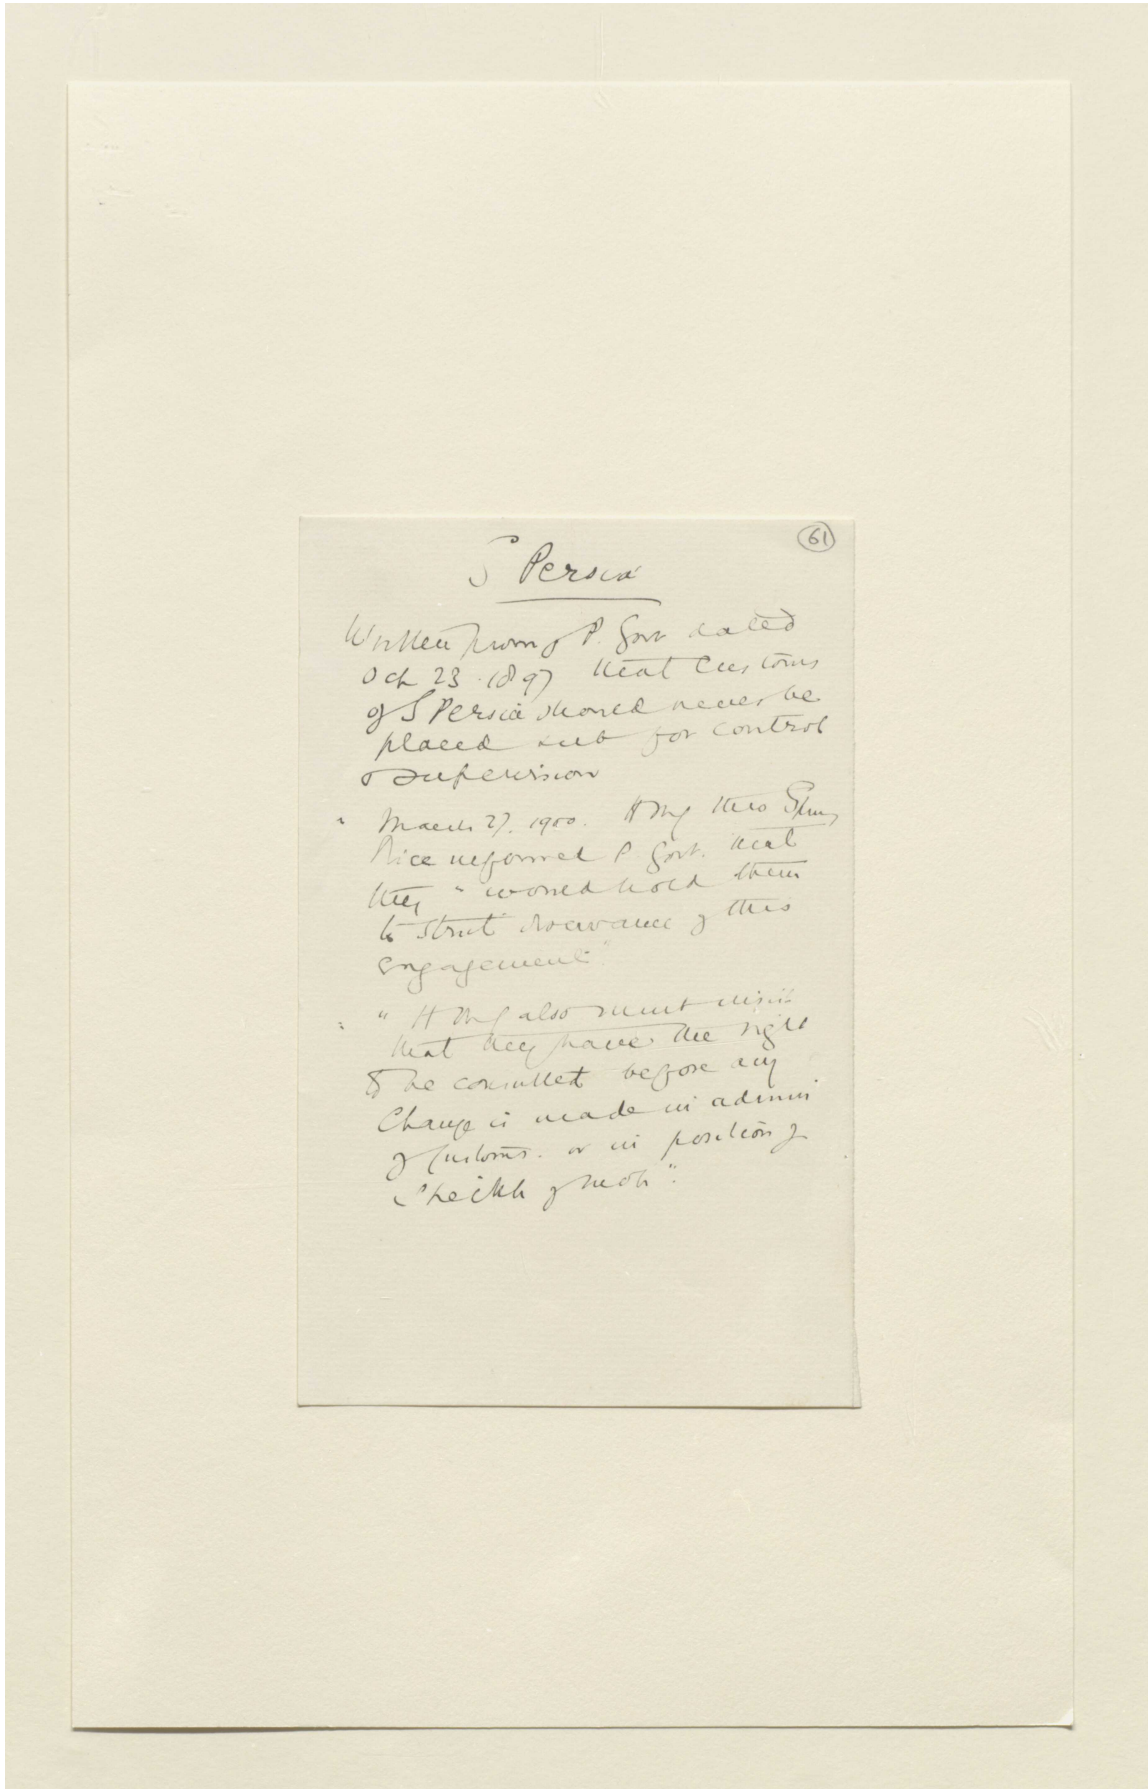 61
S Persia
Written prom of P. Govt dated
Oct 23. 1897 that Customs
of S Persia should never be
placed sub for control
or supervision
" March 27. 1900. HMG thro Spring
Rice informed P. Govt. that
they " would hold them
to strict observance of this
engagement"
" " HMG also must insist
that they have the right
to be consulted before any
Change is made in admin
of Customs. or in position of
Sheikh of Moh".